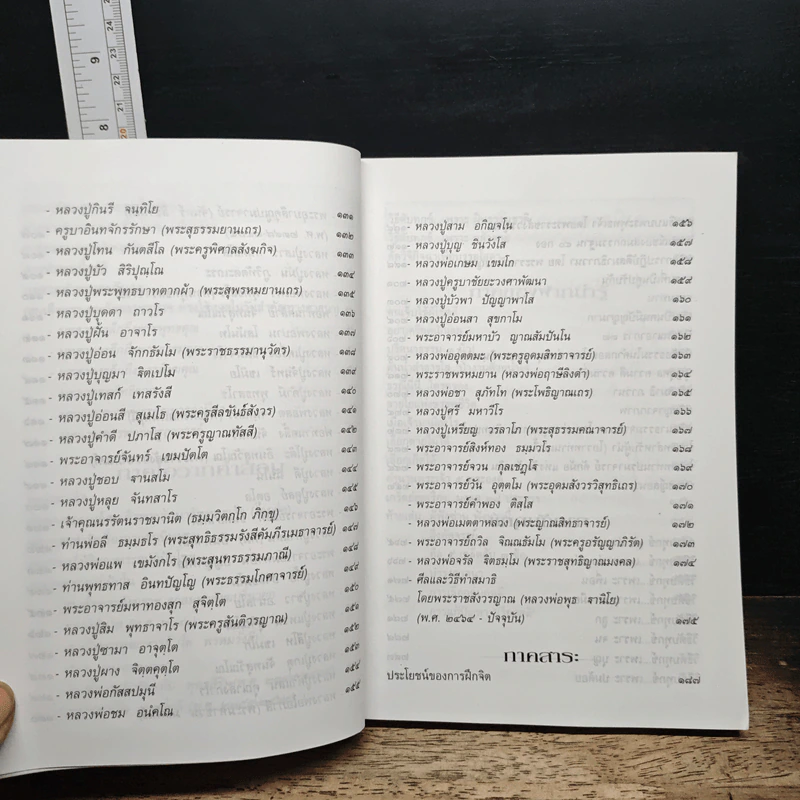 9
8
24
23
22
21
20
- หลวงปู่กินรี จนฺทิโย ๑๓๑
- ครูบาอินทจักรรักษา (พระสุธรรมยานเถร) ๑๓๒
- หลวงปู่โทน กันตสีโล (พระครูพิศาลสังฆกิจ) ๑๓๓
- หลวงปู่บัว สิริปุณฺโณ ๑๓๔
- หลวงปู่พระพุทธบาทตากผ้า (พระสุพรหมยานเถร) ๑๓๕
- หลวงปู่บุดดา ถาวโร ๑๓๖
- หลวงปู่ฝั้น อาจาโร ๑๓๗
- หลวงปู่อ่อน จักกธัมโม (พระราชธรรมานุวัตร) ๑๓๘
- หลวงปู่บุญมา ฐิตเปโม ๑๓๙
- หลวงปู่เทสก์ เทสรังสี ๑๔๐
- หลวงปู่อ่อนสี สุเมโธ (พระครูสีลขันธ์สังวร) ๑๔๑
- หลวงปู่คำดี ปภาโส (พระครูญาณทัสสี) ๑๔๒
- พระอาจารย์จันทร์ เขมปัตโต ๑๔๓
- หลวงปู่ชอบ ฐานสโม ๑๔๔
- หลวงปู่หลุย จันทสาโร ๑๔๕
- เจ้าคุณนรรัตนราชมานิต (ธมฺมวิตกฺโก ภิกขุ) ๑๔๖
- ท่านพ่อลี ธมฺมธโร (พระสุทธิธรรมรังสีคัมภีรเมธาจารย์) ๑๔๗
- หลวงพ่อแพ เขมังกโร (พระสุนทรธรรมภาณี) ๑๔๘
- ท่านพุทธทาส อินทปัญโญ (พระธรรมโกศาจารย์) ๑๔๙
- พระอาจารย์มหาทองสุก สุจิตฺโต ๑๕๐
- หลวงปู่สิม พุทธาจาโร (พระครูสันติวรญาณ) ๑๕๑
- หลวงปู่ชามา อาจุตฺโต ๑๕๒
- หลวงปู่ผาง จิตฺตคุตฺโต ๑๕๓
- หลวงพ่อกัสสปมุนี ๑๕๔
- หลวงพ่อชม อนํคโณ ๑๕๕
- หลวงปู่สาม อกิญฺจโน ๑๕๖
- หลวงปู่บุญ ชินวังโส ๑๕๗
- หลวงพ่อเกษม เขมโก ๑๕๘
- หลวงปู่ครูบาชัยยะวงศาพัฒนา ๑๕๙
- หลวงปู่บัวพา ปัญญาพาโส ๑๖๐
- หลวงปู่อ่อนสา สุขกาโม ๑๖๑
- พระอาจารย์มหาบัว ญาณสัมปันโน ๑๖๒
- หลวงพ่ออุตตมะ (พระครูอุดมสิทธาจารย์) ๑๖๓
- พระราชพรหมยาน (หลวงพ่อฤาษีลิงดำ) ๑๖๔
- หลวงพ่อชา สุภัทโท (พระโพธิญาณเถร) ๑๖๕
- หลวงปู่ศรี มหาวีโร ๑๖๖
- หลวงปู่เหรียญ วรลาโภ (พระสุธรรมคณาจารย์) ๑๖๗
- พระอาจารย์สิงห์ทอง ธมฺมวโร ๑๖๘
- พระอาจารย์จวน กุลเชฏฺโฐ ๑๖๙
- พระอาจารย์วัน อุตฺตโม (พระอุดมสังวรวิสุทธิเถร) ๑๗๐
- พระอาจารย์คำพอง ติสฺโส ๑๗๑
- หลวงพ่อเมตตาหลวง (พระญาณสิทธาจารย์) ๑๗๒
- พระอาจารย์ถวิล จิณณธัมโม (พระครูอรัญญาภิรัต) ๑๗๓
- หลวงพ่อจรัล ฐิตธมฺโม (พระราชสุทธิญาณมงคล) ๑๗๔
- ศีลและวิธีทำสมาธิ
โดยพระราชสังวรญาณ (หลวงพ่อพุธ ฐานิโย)
(พ.ศ. ๒๔๖๔ - ปัจจุบัน) ๑๗๕
ภาคสาระ
ประโยชน์ของการฝึกจิต ๑๘๗